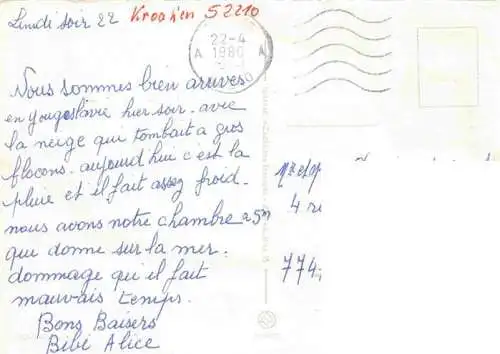 Lundi soir 22 Kroatien 52210
22-4
A 1980 A
Nous sommes bien arrivés
en Yougoslavie hier soir. avec
la neige qui tombait a gros
flocons. aujourd'hui c'est la
pluie et il fait assez froid.
nous avons notre chambre a 5m
qui donne sur la mer.
dommage qu'il fait
mauvais temps.
Bons Baisers
Bibi Alice
4 r
774